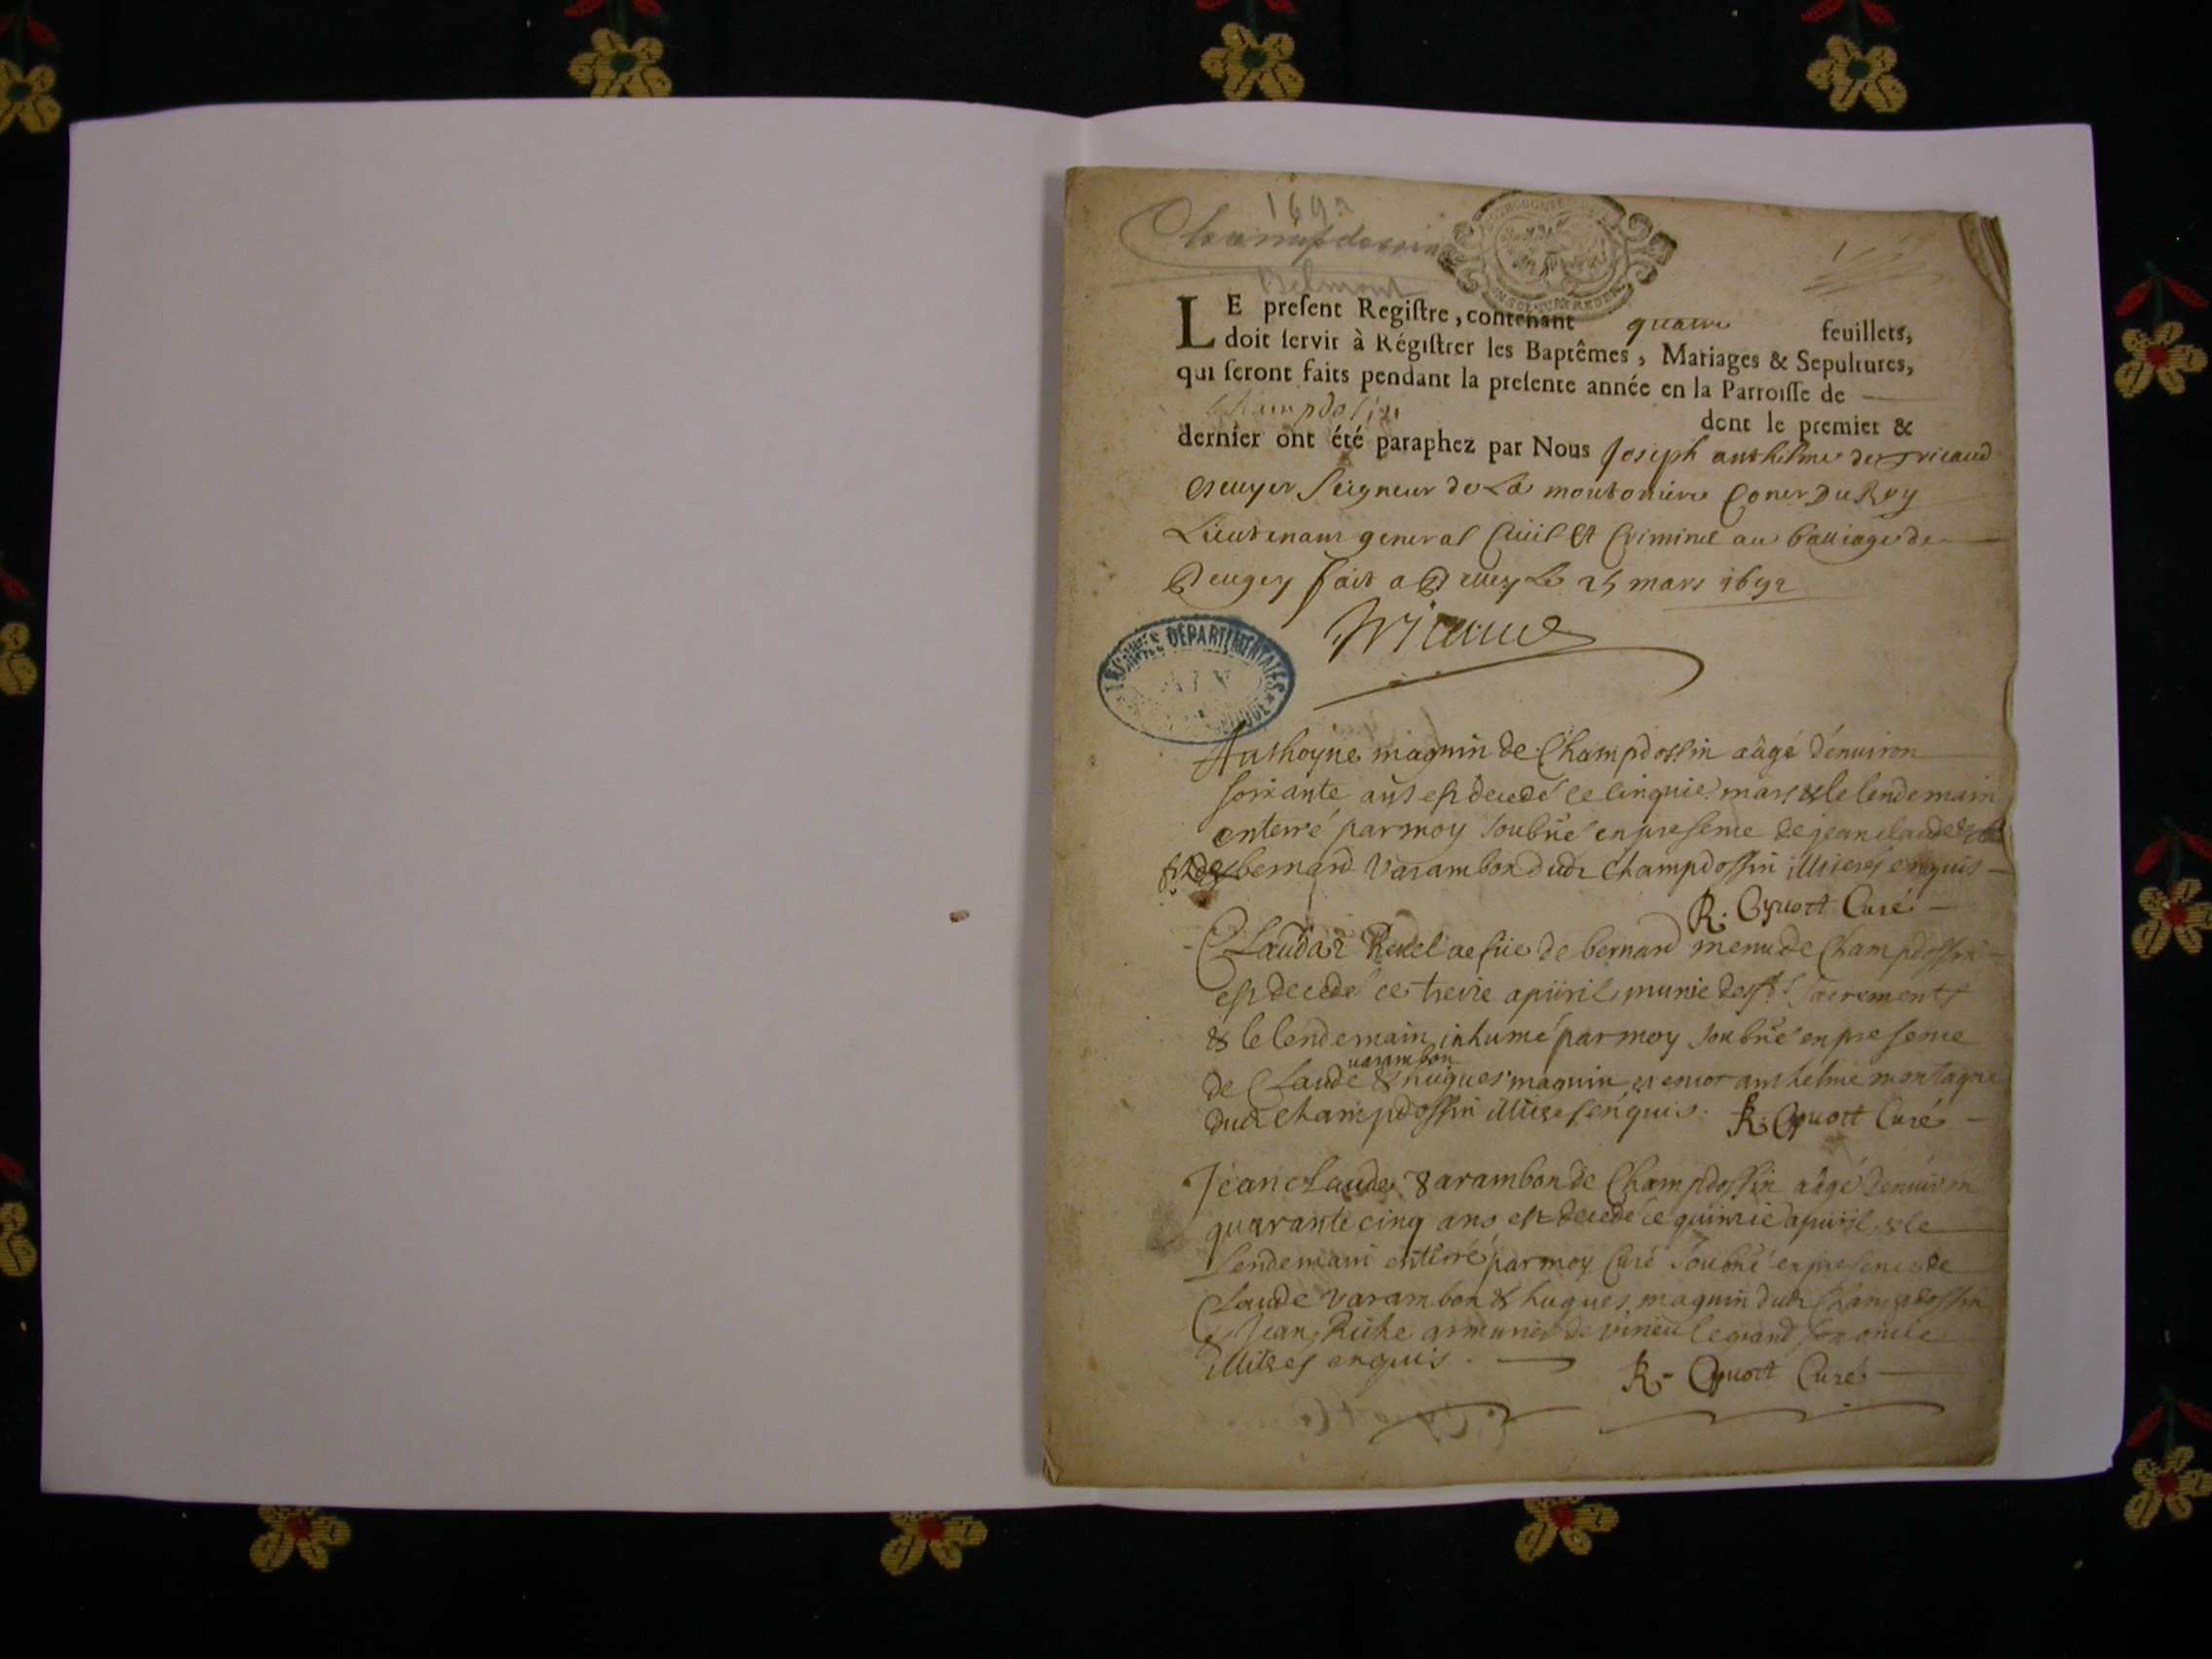 1692
Champdossin
Belmont
LE preſent Regiſtre, contenant quatre feuillets,
doit ſervir à Régiſtrer les Baptêmes, Mariages & Sepultures,
qui ſeront faits pendant la preſente année en la Parroiſſe de
Champdosin dont le premier &
dernier ont été paraphez par Nous Joseph anthelme de Tricaud
Escuyer Seigneur de La moutonniere Coner Du Roy
Lieutenant general Ciuil Et Criminel au bailiage de
Beugey fait a Belley Le 25 mars 1692
Tricaud
ARCHIVES DÉPARTEMENTALES
AIN
Anthoyne magnin de Champdossin aâgé d'enuiron
soixante ans est decedé ce cinquie. mars & le lendemain
enterré par moy soubné en presence de jean claude
bernard Varambon dudt Champdossin illiteres enquis
R. Guyott Curé
Clauda de bernard menu de Champdossin
est decedé ce treizie apuril munie des sts. sacrements
& le lendemain inhumé par moy soubné en presence
varambon
de Claude & hugues magnin et anthelme montagne
dudt Champdossin illiteres enquis. R. Guyott Curé
Jean claude Varambon de Champdossin aâgé d'enuiron
quarante cinq ans est decedé ce quinzie apuril & le
lendemain enterré par moy Curé soubné en presence de
Claude varambon & hugues magnin dudt Champdossin
& Jean Riche armurier de virieu le grand son oncle
illiteres enquis.
R. Guyott Curé